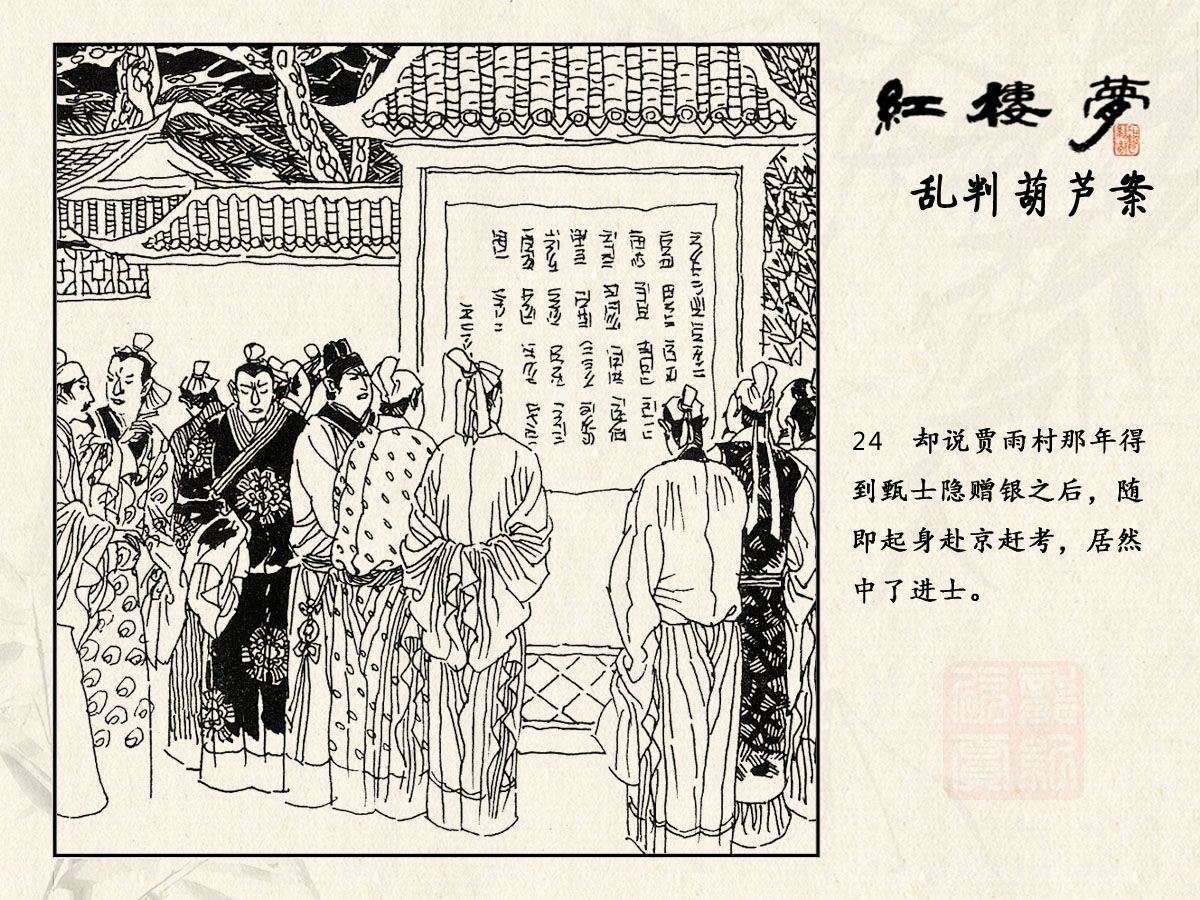 紅樓夢
乱判葫芦案
24 却说贾雨村那年得
到甄士隐赠银之后，随
即起身赴京赶考，居然
中了进士。